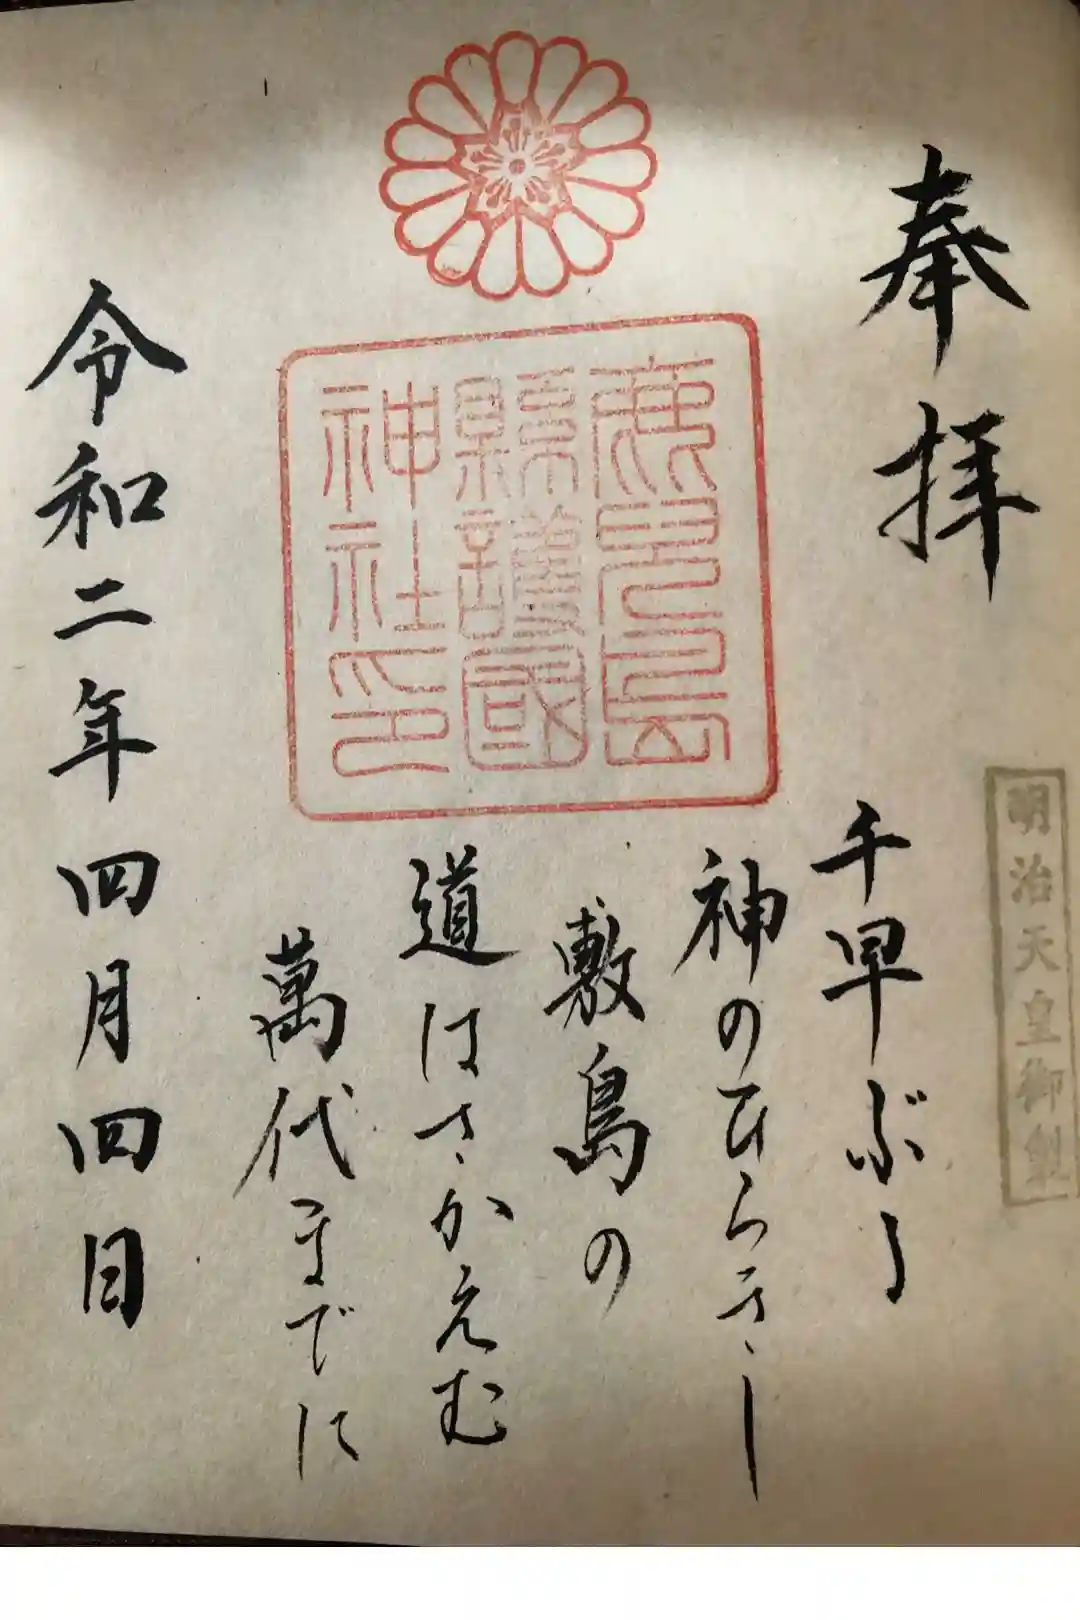 奉拝
明治天皇御製
千早ぶる
神のひらきし
敷島の
道はさかえむ
萬代までに
鹿児島
縣護國
神社印
令和二年四月四日